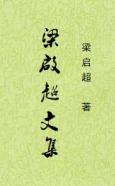 梁启超文集
梁启超 著